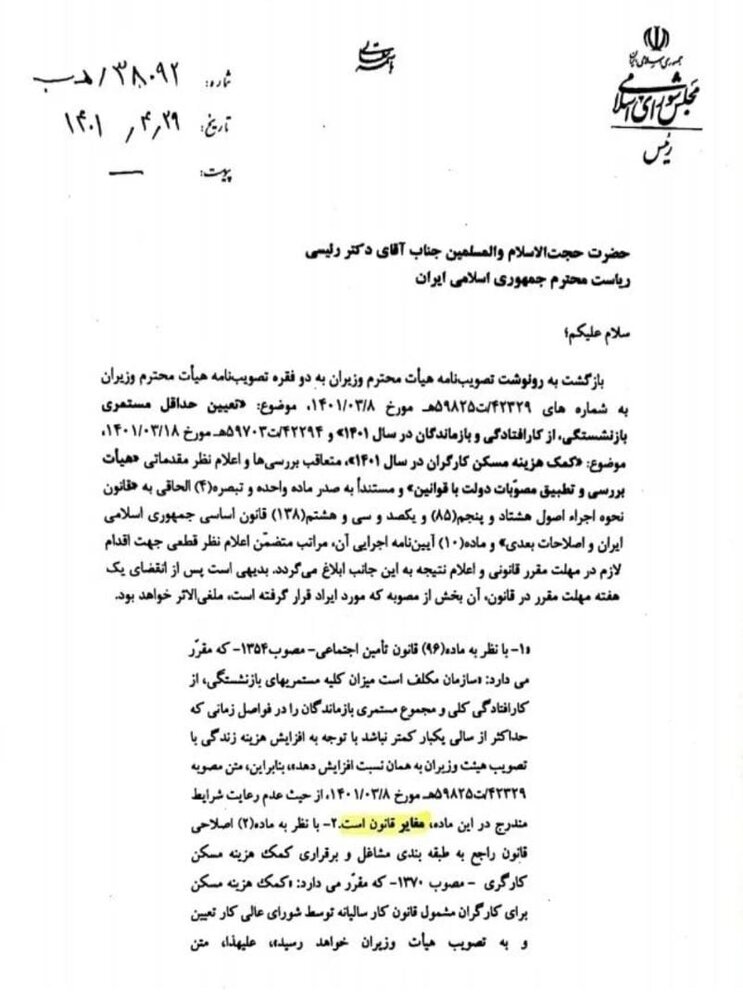 جمهوری اسلامی ایران
مجلس شورای اسلامی
رئیس
باسمه تعالی
شماره: ۳۸۰۹۲/هـ ب
تاریخ: ۱۴۰۱/۴/۲۹
پیوست: —
حضرت حجت‌الاسلام والمسلمین جناب آقای دکتر رئیسی
ریاست محترم جمهوری اسلامی ایران
سلام علیکم؛
بازگشت به رونوشت تصویب‌نامه هیأت محترم وزیران به دو فقره تصویب‌نامه هیأت محترم وزیران
به شماره های ۴۲۳۲۹/ت۵۹۸۲۵هـ مورخ ۱۴۰۱/۰۳/۸، موضوع: «تعیین حداقل مستمری
بازنشستگی، از کارافتادگی و بازماندگان در سال ۱۴۰۱» و ۴۲۲۹۴/ت۵۹۷۰۳هـ مورخ ۱۴۰۱/۰۳/۱۸،
موضوع: «کمک هزینه مسکن کارگران در سال ۱۴۰۱»، متعاقب بررسی‌ها و اعلام نظر مقدماتی «هیأت
بررسی و تطبیق مصوّبات دولت با قوانین» و مستنداً به صدر ماده واحده و تبصره(۴) الحاقی به «قانون
نحوه اجراء اصول هشتاد و پنجم(۸۵) و یکصد و سی و هشتم(۱۳۸) قانون اساسی جمهوری اسلامی
ایران و اصلاحات بعدی» و ماده(۱۰) آیین‌نامه اجرایی آن، مراتب متضمّن اعلام نظر قطعی جهت اقدام
لازم در مهلت مقرر قانونی و اعلام نتیجه به این جانب ابلاغ می‌گردد. بدیهی است پس از انقضای یک
هفته مهلت مقرر در قانون، آن بخش از مصوبه که مورد ایراد قرار گرفته است، ملغی‌الاثر خواهد بود.
«۱- با نظر به ماده(۹۶) قانون تأمین اجتماعی- مصوب۱۳۵۴- که مقرّر
می دارد: «سازمان مکلف است میزان کلیه مستمریهای بازنشستگی، از
کارافتادگی کلی و مجموع مستمری بازماندگان را در فواصل زمانی که
حداکثر از سالی یکبار کمتر نباشد با توجه به افزایش هزینه زندگی با
تصویب هیئت وزیران به همان نسبت افزایش دهد»، بنابراین، متن مصوبه
۴۲۳۲۹/ت۵۹۸۲۵هـ مورخ ۱۴۰۱/۰۳/۸، از حیث عدم رعایت شرایط
مندرج در این ماده، مغایر قانون است.۲- با نظر به ماده(۲) اصلاحی
قانون راجع به طبقه بندی مشاغل و برقراری کمک هزینه مسکن
کارگری - مصوب ۱۳۷۰- که مقرّر می دارد: «کمک هزینه مسکن
برای کارگران مشمول قانون کار سالیانه توسط شورای عالی کار تعیین
و به تصویب هیأت وزیران خواهد رسید»، علیهذا، متن